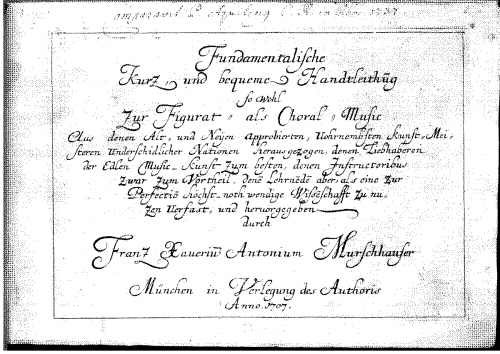 Fundamentalische
Kurz, und bequeme Handtleithũg
So wohl
Zur Figurat= als Choral= Music
Aus denen Alt, und Neüen Approbierten, Vohrnembsten Kunst=Mei=
steren Underschidlicher Nationen Herausgezogen, denen Liebhaberen
der Edlen Music=Kunst zum besten, denen Instructoribus
zwar zum Vortheil, denẽ Lehrnẽdẽ aber, als eine Zur
Perfectiõ höchst=nothwendige Wissẽschafft zu nu,
zen Verfast, und hervorgegeben
durch
Franz Xaveriũ Antonium Murschhauser
München in Verlegung des Authoris
Anno. 1707.